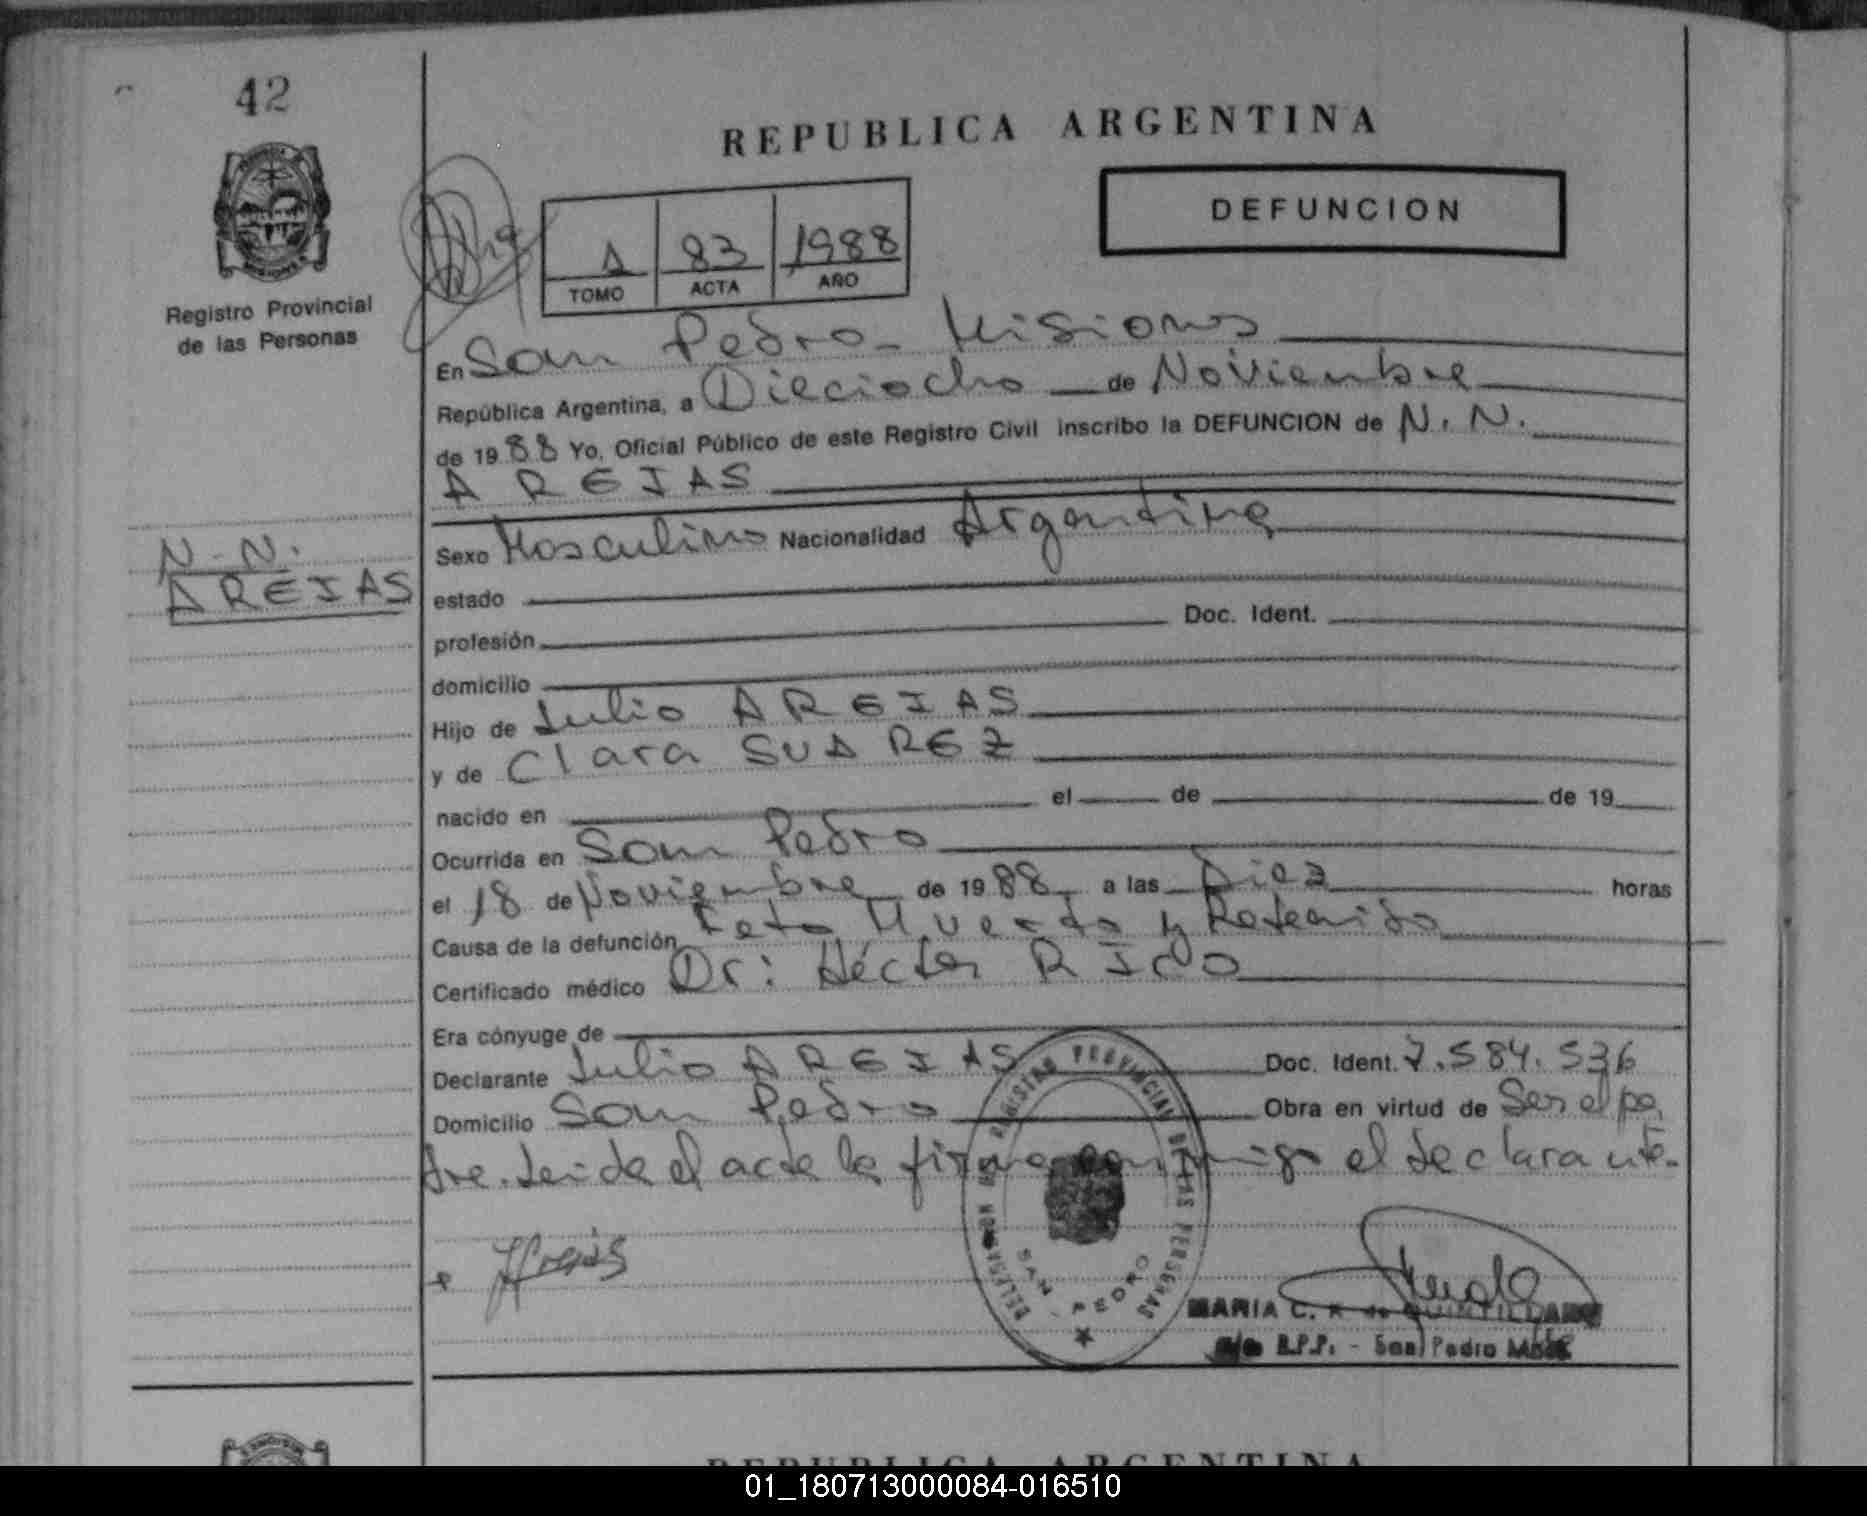 42
REPUBLICA ARGENTINA
DEFUNCION
1 83 1988
TOMO ACTA AÑO
Registro Provincial
de las Personas
En San Pedro - Misiones
República Argentina, a Dieciocho de Noviembre
de 1988 Yo, Oficial Público de este Registro Civil inscribo la DEFUNCION de N. N.
AREJAS
N. N.
AREJAS
Sexo Masculino Nacionalidad Argentina
estado
profesión Doc. Ident.
domicilio
Hijo de Julio AREJAS
y de Clara SUAREZ
nacido en el de de 19
Ocurrida en San Pedro
el 18 de Noviembre de 1988 a las Diez horas
Causa de la defunción Feto Muerto y Retenido
Certificado médico Dr: Héctor
Era cónyuge de
Declarante Julio AREJAS Doc. Ident. 7.584.536
Domicilio San Pedro Obra en virtud de Ser el pa
dre. Leida el acta la firma conmigo el declarante.
DELEGACION DEL REGISTRO PROVINCIAL DE LAS PERSONAS
SAN PEDRO
MARIA C. R. de QUINTILLAN
R.P.P. - San Pedro Mnes
REPUBLICA ARGENTINA
01_180713000084-016510